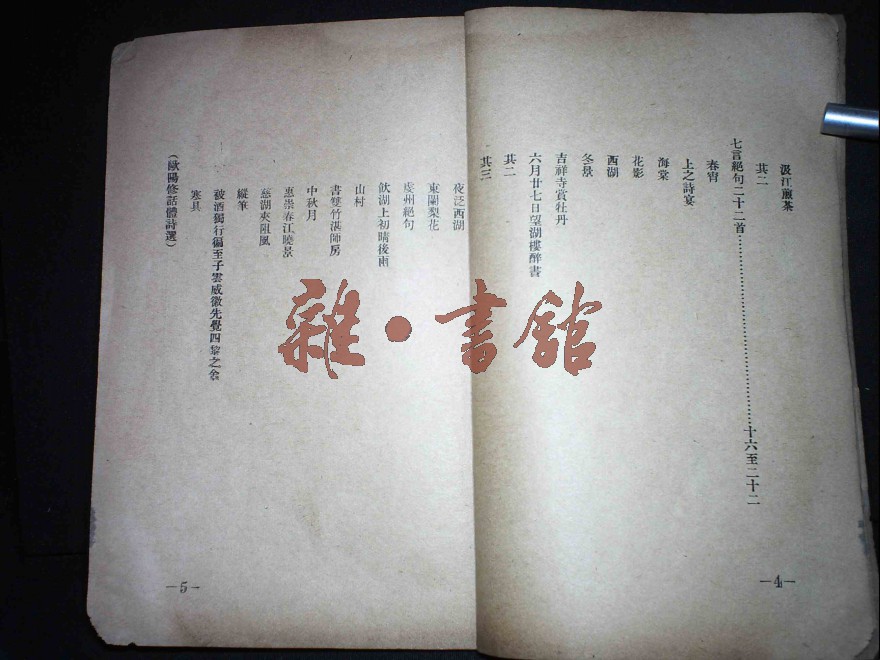 汲江煎茶
其二
七言絕句二十二首……十六至二十二
春宵
上之詩宴
海棠
花影
西湖
冬景
吉祥寺賞牡丹
六月廿七日望湖樓醉書
其二
其三
—4—
夜泛西湖
東闌梨花
虔州絕句
飲湖上初晴後雨
山村
書雙竹湛師房
中秋月
惠崇春江曉景
慈湖夾阻風
縱筆
被酒獨行徧至子雲威徽先覺四黎之舍
寒具
(歐陽修話體詩選)
—5—
雜·書館